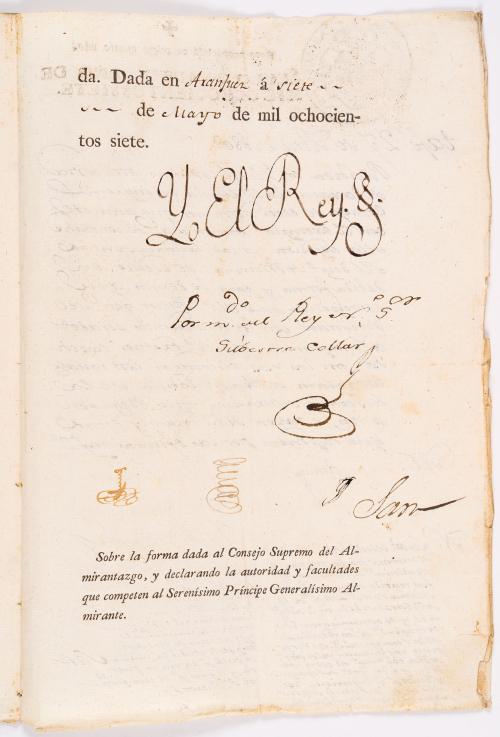 da. Dada en Aranjuez á siete
de Mayo de mil ochocien-
tos siete.
Yo El Rey.
Por m.do del Rey N. S.or
Silvestre Collar
Sobre la forma dada al Consejo Supremo del Al-
mirantazgo, y declarando la autoridad y facultades
que competen al Serenísimo Príncipe Generalísimo Al-
mirante.